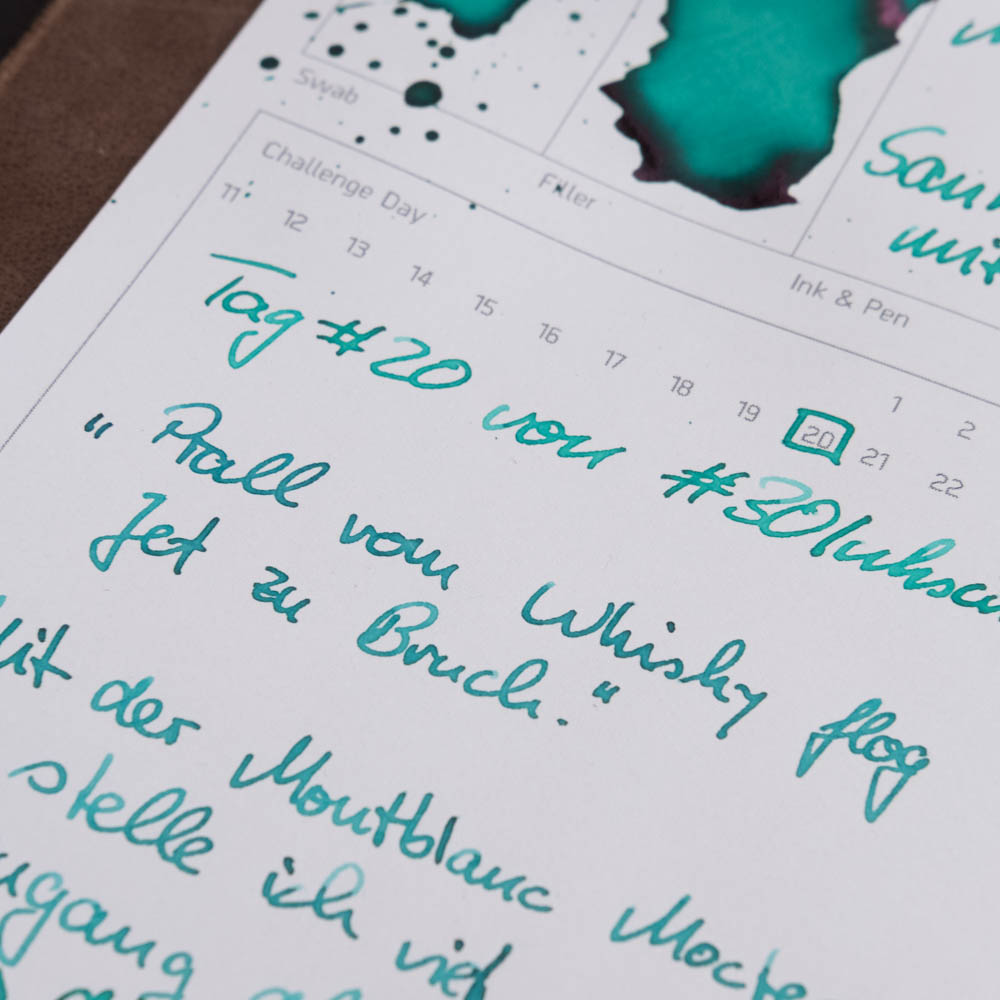 Swab
Filler
Ink & Pen
mit
Challenge Day
1 2
11 12 13 14 15 16 17 18 19 20 21 22
Tag #20 von
„Prall vom Whisky flog
Jet zu Bruch.“
der Montblanc
stelle ich